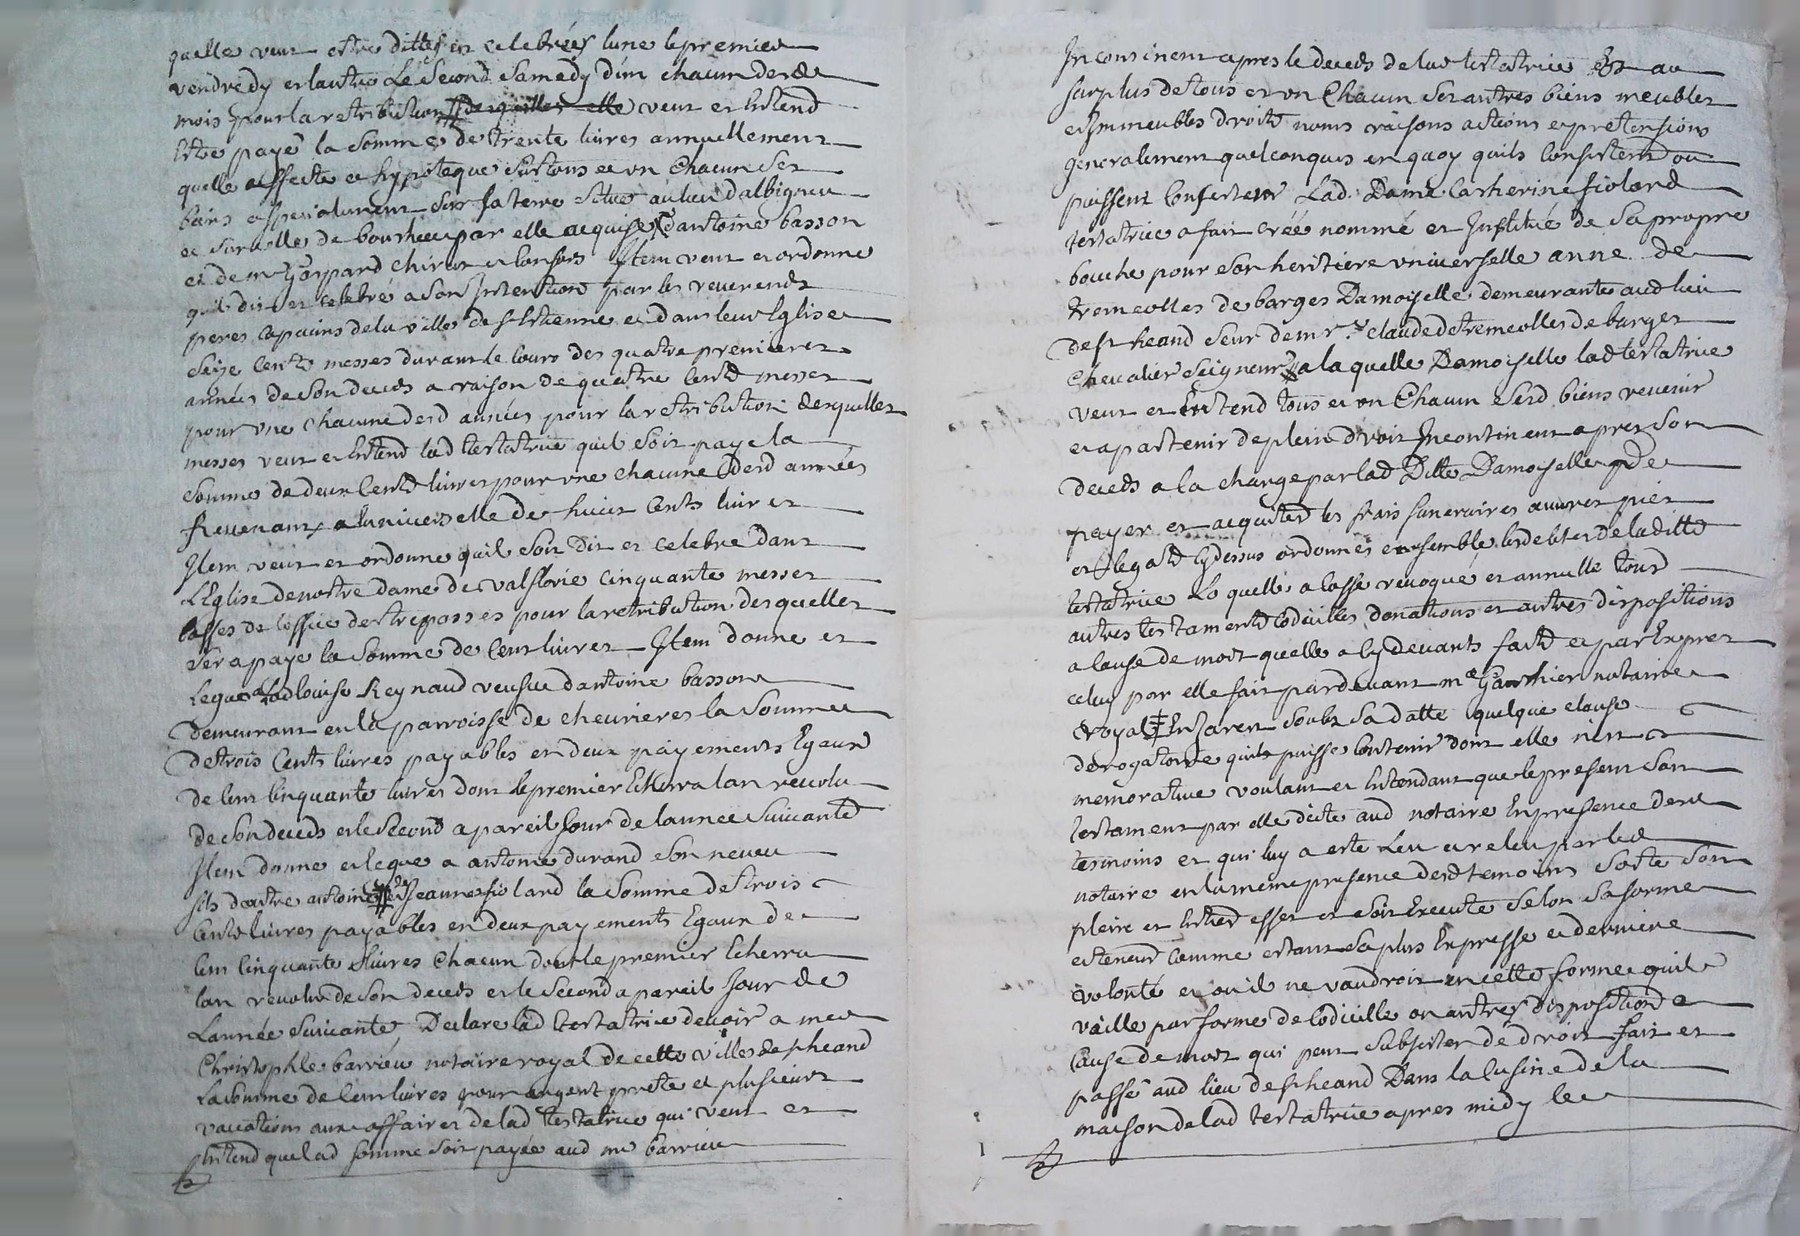 quelle veut estre dittes et celebrées lune le premier
vendredy et lautre Le Second Samedy d'un chacun desd
mois pour la retribution desquelles elle veut et Entend
Estre payé la Somme de trente livres annuellement
quelle affecte et hypoteque Sur tous et un Chacun Ses
biens et specialement Sur sa terre Situe au lieu d'albigneu
et Sur celle de bourcheu par elle acquise d'antoine basson
et de mr Gaspard Chirat et Consors Item veut et ordonne
quil dit et celebré a Son Intention par les reverends
peres Capucins de la ville de St Etienne et dans leur Eglise
Seize Cents messes durant le Cours des quatre premieres
années de Son deceds a raison de quatre Cents messes
pour une chacune desd années pour la retribution desquelles
messes veut et Entend lad testatrice quil Soit paye la
Somme de deux Cents livres pour une chacune desd années
Revenant a luniverselle de huict Cents livres
Item veut et ordonne quil Soit dit et celebre dans
LEglise de nostre dame de valflorie Cinquante messes
basses de loffice des trepasses pour la retribution desquelles
Sera paye la Somme de Cent livres Item donne et
Legue a Lad louise Reynaud veufve d'antoine basson
Demeurant en la parroisse de chevrieres la Somme
de trois Cents livres payables en deux payements Egaux
de Cent Cinquante livres dont le premier Echerra lan revolu
de Son deceds et le Second a pareil Jour de lannee Suivante
Item donne et legue a antoine durand Son neveu
fils dautre antoine et de Jeanne fiolard la Somme de trois
Cents livres payables en deux payements Egaux de
Cent Cinquante livres Chacun dont le premier Echerra
lan revolu de Son deceds et le Second a pareil Jour de
Lannée Suivante Declare lad testatrice devoir a me
Christophle barrieu notaire royal de cette ville de St heand
La Somme de Cent livres pour argent preté et plusieurs
vacations aux affaires de lad testatrice qui veut et
Entend que lad Somme Soit payée aud me barrieu
Incontinent apres le deceds de lad testatrice Et au
Surplus de tous et un Chacun Ses autres biens meubles
et Immeubles droits noms raisons actions et pretensions
generalement quelconques en quoy quils Consistent ou
puissent Consister Lad. Dame Catherine fiolard
testatrice a fait créé nommé et Institué de Sa propre
bouche pour Son heritiere universelle anne de
tremeolles de barges Damoyselle demeurante aud lieu
de St heand Seur de mre Claude de tremeolles de barges
Chevalier Seigneur a la quelle Damoyselle lad testatrice
veut et Entend tous et un Chacun Sesd biens revenir
et apartenir de plein droit Incontinent apres Son
deceds a la charge par lad Ditte Damoyselle de
payer et acquitter les frais funeraires œuvres pies
et legats Cy dessus ordonnés ensemble les debtes de laditte
testatrice La quelle a Casse revoqué et annulle tous
autres testaments Codicilles donations et autres dispositions
a Cause de mort quelle a Cy devants faits et par Expres
celuy par elle fait pardevant me Gauthier notaire
royal En Jarez Soubz Sa datte quelque clause
derogatoire quil puisse Contenir dont elle n'est
memorative voulant et Entendant que le present Son
testament par elle dicte aud notaire En presence des
tesmoins et qui luy a este Leu et releu par led
notaire en la meme presence desd temoins Sorte Son
plein et Entier effet et Soit Execute Selon Sa forme
et teneur Comme estant Sa plus Expresse et derniere
volonté et ou il ne vaudroit en cette forme quil
vaille par forme de Codicille ou autres disposition a
Cause de mort qui peut Subsister de droit fait et
passé aud lieu de St heand Dans la Cusine de la
maison de lad testatrice apres midy le